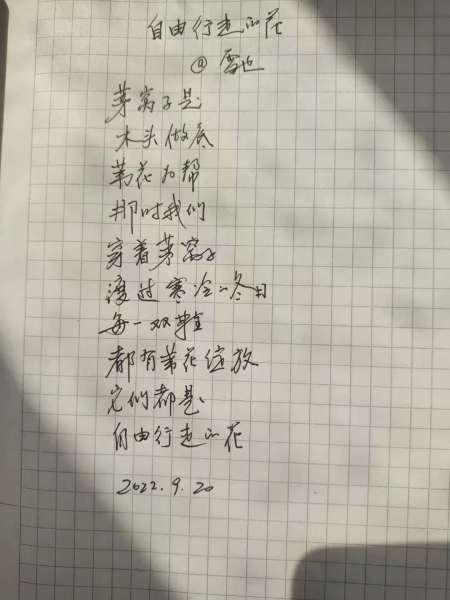 自由行走的花
@雪也
茅窝子是
木头做底
苇花为帮
那时我们
穿着茅窝子
渡过寒冷的冬日
每一双鞋
都有苇花绽放
它们都是
自由行走的花
2022.9.20